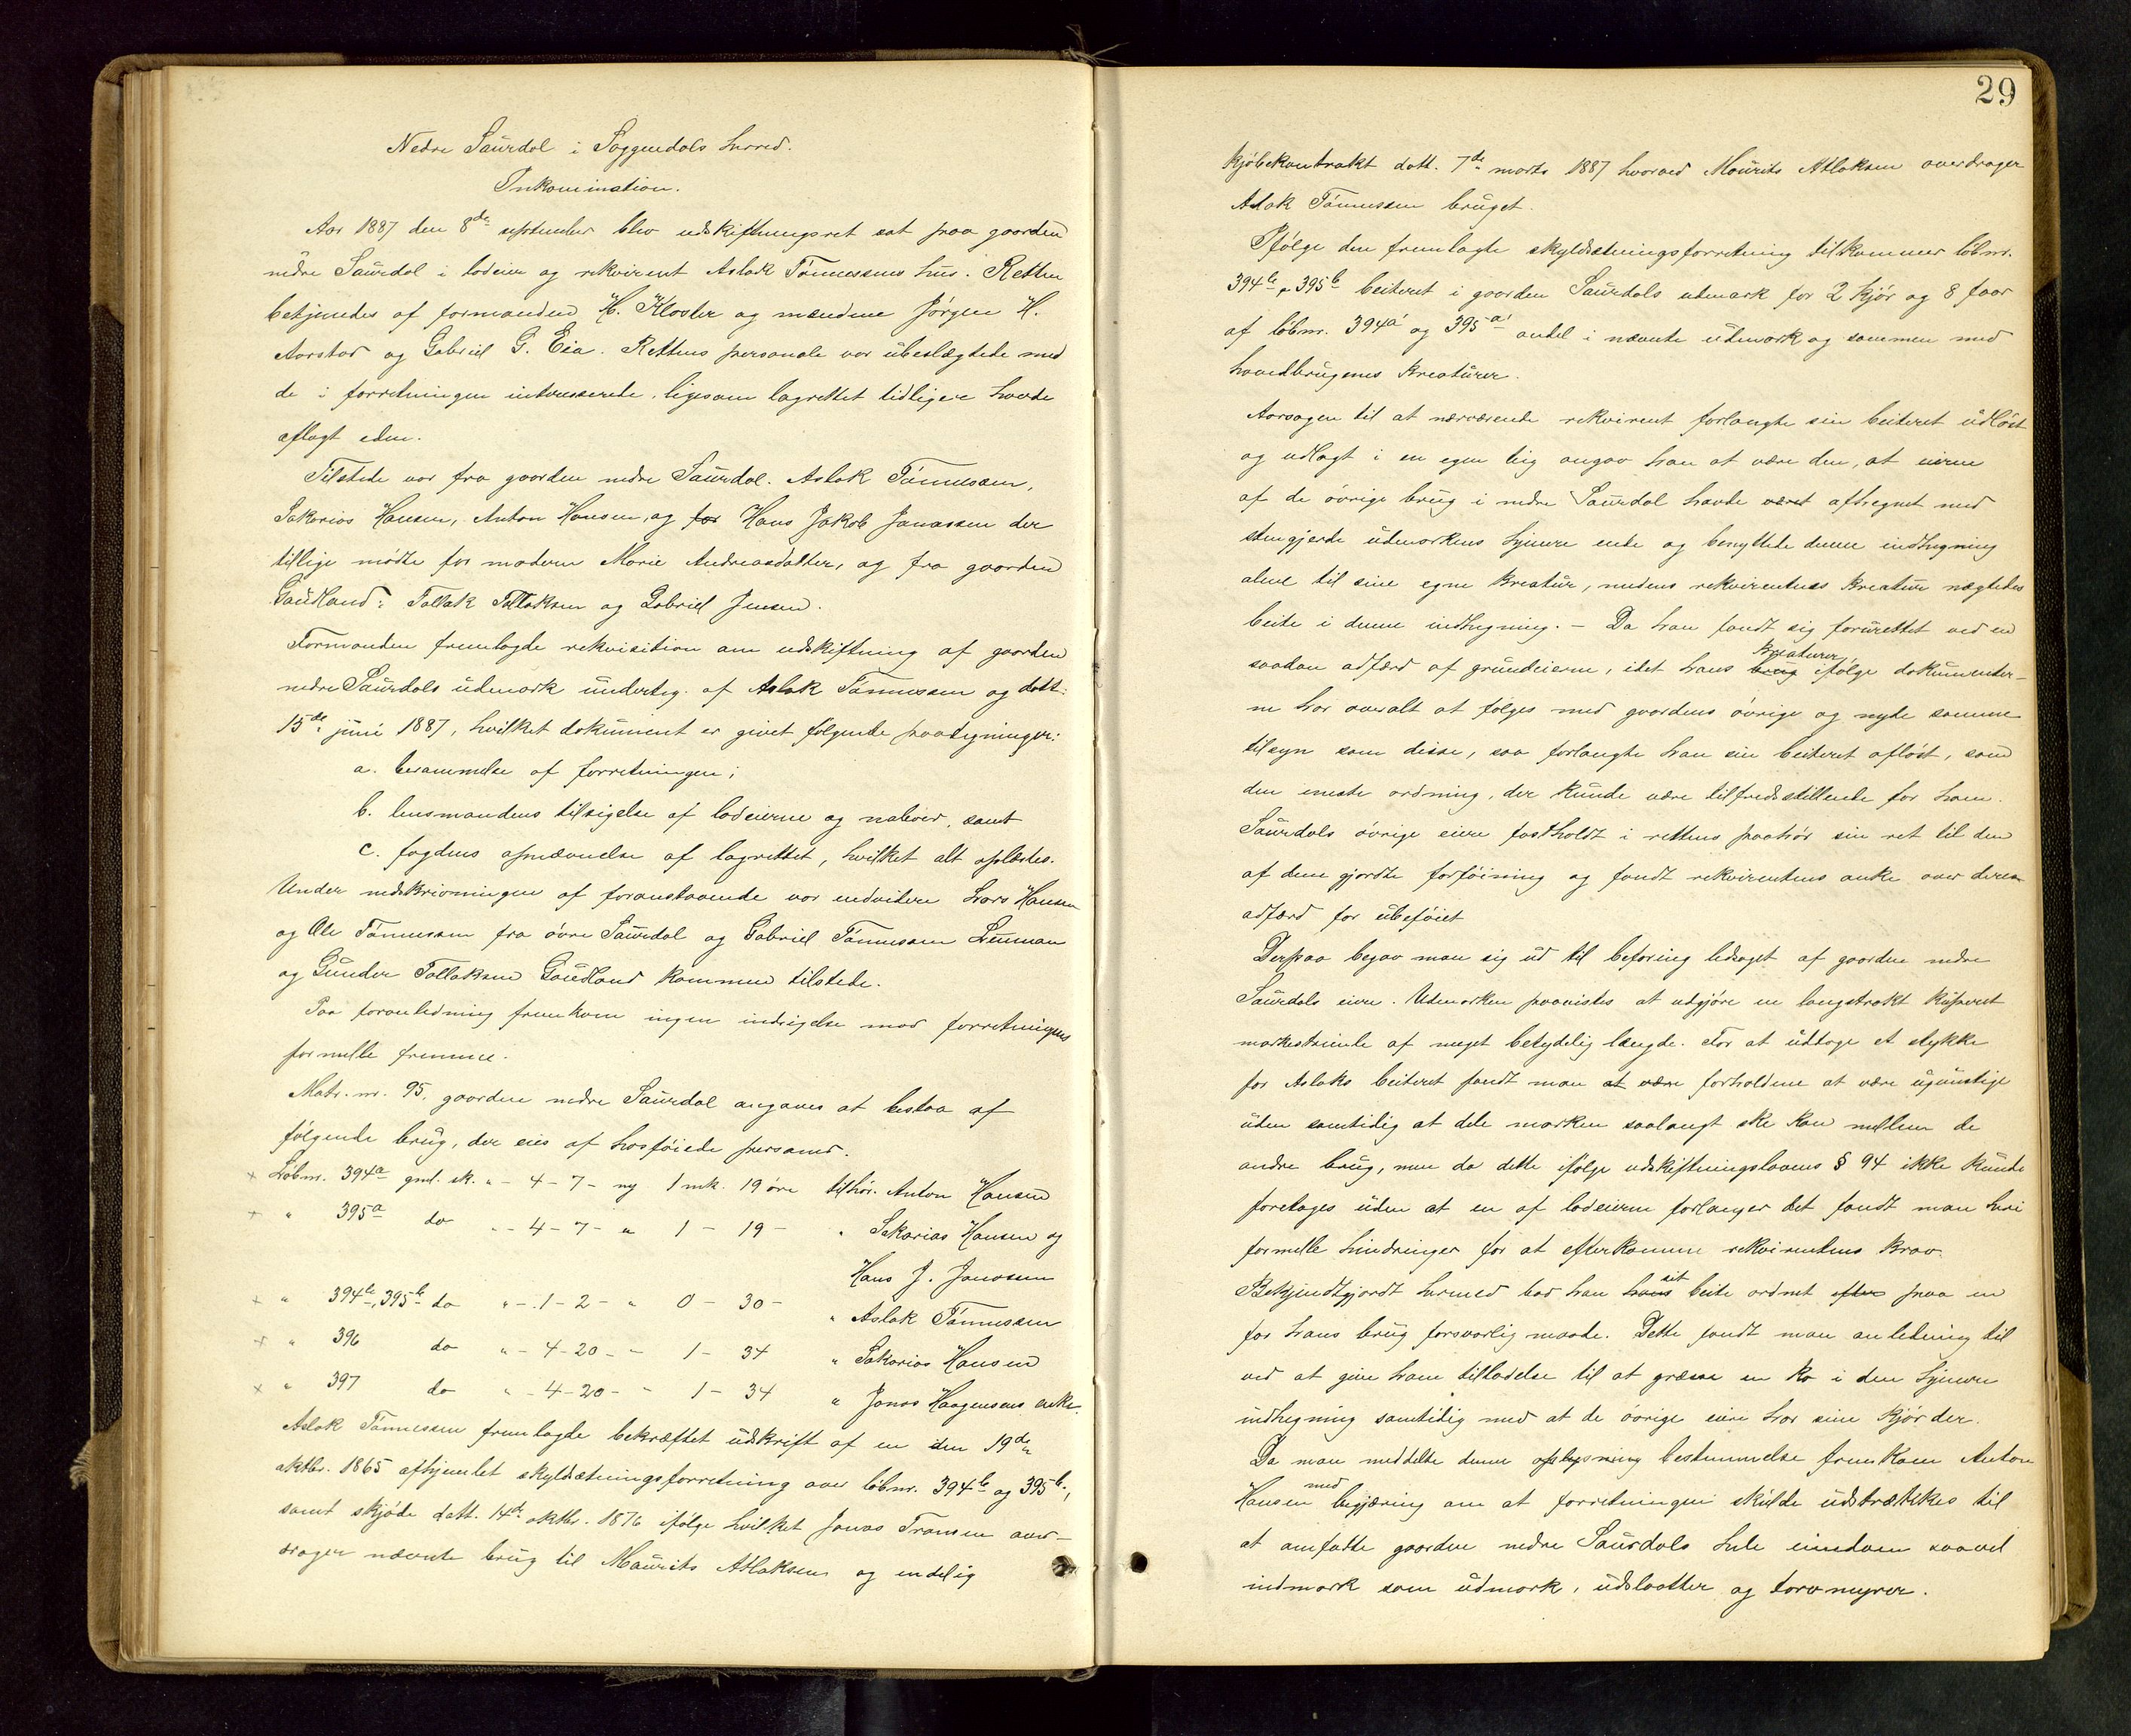 Nedre Saurdal i Soggendals herred.
Inkamination.
Aar 1887 den 8de september blev udskiftningsret sat paa gaarden
nedre Saurdal i lodeier og rekvirent Aslak Tønnessens hus. Retten
betjentes af formanden H. Kloster og mændene Jørgen H.
Aarstad og Gabriel G. Eia. Rettens personale var ubeslægtede med
de i forretningen interesserede, ligesom lagrettet tidligere havde
aflagt eden.
Tilstede var fra gaarden nedre Saurdal: Aslak Tønnessen,
Sakarias Hansen, Anton Hansen, og for Hans Jakob Jonassen der
tillige mødte for moderen Marie Andreasdatter, og fra gaarden
Gaudland: Tollak Tollaksen og Gabriel Jensen.
Formanden fremlagde rekvisition om udskiftning af gaarden
nedre Saurdals udmark underteg. af Aslak Tønnessen og datt.
15de juni 1887, hvilket dokument er givet følgende paategninger:
a. berammelse af forretningen;
b. lensmandens tilsigelse af lodeierne og naboer, samt
c. fogdens opnævnelse af lagrettet, hvilket alt oplæstes.
Under nedskrivningen af foranstaaende var endvidere Lars Hansen
og Ole Tønnessen fra øvre Saurdal og Gabriel Tønnessen
og Gunder Tollaksen Gaudland kommen tilstede.
Paa foranledning fremkom ingen indsigelse mod forretningens
formelle fremme.
Matr. nr. 95, gaarden nedre Saurdal angaves at bestaa af
følgende brug, der eies af hosføiede personer.
× Løbnr. 394a gml. sk. " - 4 - 7 - ny 1 mk. 19 øre tilhør. Anton Hansen
× " 395a do " - 4 - 7 - " 1 - 19 - " Sakarias Hansen og
Hans J. Jonassen
× " 394b, 395b do " - 1 - 2 - " 0 - 30 - " Aslak Tønnessen
× " 396 do " - 4 - 20 - " 1 - 34 " Sakarias Hansen
× " 397 do " - 4 - 20 - " 1 - 34 " Jonas Haagensens enke.
Aslak Tønnessen fremlagde bekræftet udskrift af en den 19de
oktbr. 1865 afhjemlet skyldsætningsforretning over løbnr. 394b og 395b,
samt skjøde datt. 14de oktbr. 1876 ifølge hvilket Jonas Transen over-
drager nævnte brug til Maurits Atlaksen og endelig
29
kjøbekontrakt datt. 7de marts 1887 hvorved Maurits Atlaksen overdrager
Aslak Tønnessen bruget.
Ifølge den fremlagte skyldsætningsforretning tilkommer løbnr.
394b & 395b beiteret i gaarden Saurdals udmark for 2 kjør og 8 faar
af løbnr. 394a og 395a andel i nævnte udmark og sammen med
hovedbrugenes kreaturer.
Aarsagen til at nærværende rekvirent forlangte sin beiteret udløst
og udlagt i en egen teig angav han at være den, at eierne
af de øvrige brug i nedre Saurdal havde været afhegnet med
stengjerde udmarkens hjemre ende og benyttede denne indhegning
alene til sine egne kreatur, medens rekvirentens kreatur nægtedes
beite i denne indhegning. – Da han fandt sig forurettet ved en
saadan adfærd af grundeierne, idet hans brug kreaturer ifølge dokumenter-
ne har overalt at følges med gaardens øvrige og nyde samme
tilsyn som disse, saa forlangte han sin beiteret afløst, som
den eneste ordning, der kunde være tilfredsstillende for ham.
Saurdals øvrige eiere fastholdt i rettens paahør sin ret til den
af dem gjordte forføining og fandt rekvirentens anke over deres
adfærd for ubeføiet
Derpaa begav man sig ud til befaring ledsaget af gaarden nedre
Saurdals eiere. Udmarken paavistes at udgjøre en langstrakt kuperet
markestrimle af meget betydelig længde. For at udtage et stykke
for Aslaks beiteret fandt man at være forholdene at være ugunstige
uden samtidig at dele marken saalangt ske kan mellem de
andre brug, men da dette ifølge udskiftningslovens § 94 ikke kunde
foretages uden at en af lodeierne forlanger det fandt man heri
formelle hindringer for at efterkomme rekvirentens krav.
Bekjendtgjordt hermed bad han hans sit beite ordnet efter paa en
for hans brug forsvarlig maade. Dette fandt man anledning til
ved at give ham tilladelse til at græsse en ko i den hjemre
indhegning samtidig med at de øvrige eiere har sine kjør der.
Da man meddelte denne oplysning bestemmelse fremkom Anton
Hansen med begjæring om at forretningen skulde udstrækkes til
at omfatte gaarden nedre Saurdals hele eiendom saavel
indmark som udmark, udslaatter og torvmyrer.